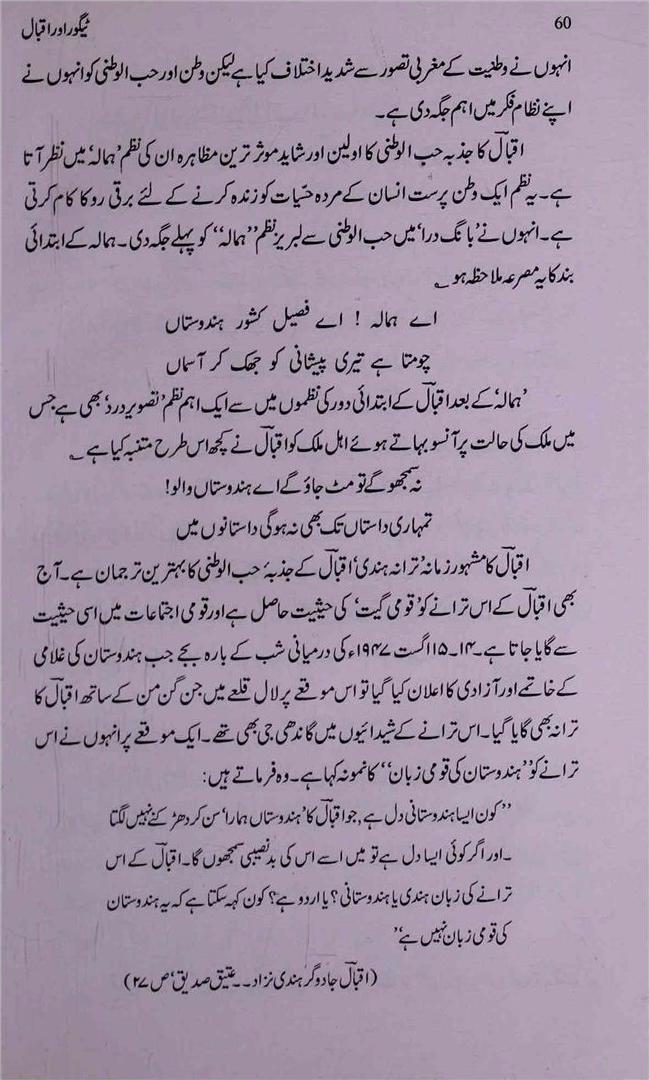 60
ٹیگور اور اقبال
انہوں نے وطنیت کے مغربی تصور سے شدید اختلاف کیا ہے لیکن وطن اور حب الوطنی کو انہوں نے
اپنے نظام فکر میں اہم جگہ دی ہے۔
اقبالؔ کا جذبہ حب الوطنی کا اولین اور شاید موثر ترین مظاہرہ ان کی نظم ’ہمالہ‘ میں نظر آتا
ہے۔ یہ نظم ایک وطن پرست انسان کے مردہ حسّیات کو زندہ کرنے کے لئے برقی رو کا کام کرتی
ہے۔ انہوں نے ’بانگ درا‘ میں حب الوطنی سے لبریز نظم ’’ہمالہ‘‘ کو پہلے جگہ دی۔ ہمالہ کے ابتدائی
بند کا یہ مصرعہ ملاحظہ ہو ؎
اے ہمالہ ! اے فصیل کشور ہندوستاں
چومتا ہے تیری پیشانی کو جھک کر آسماں
’ہمالہ‘ کے بعد اقبالؔ کے ابتدائی دور کی نظموں میں سے ایک اہم نظم ’تصویر درد‘ بھی ہے جس
میں ملک کی حالت پر آنسو بہاتے ہوئے اہل ملک کو اقبالؔ نے کچھ اس طرح متنبہ کیا ہے ؎
نہ سمجھو گے تو مٹ جاؤ گے اے ہندوستاں والو!
تمہاری داستاں تک بھی نہ ہوگی داستانوں میں
اقبالؔ کا مشہور زمانہ ’ترانہ ہندی‘ اقبالؔ کے جذبۂ حب الوطنی کا بہترین ترجمان ہے۔ آج
بھی اقبالؔ کے اس ترانے کو ’قومی گیت‘ کی حیثیت حاصل ہے اور قومی اجتماعات میں اسی حیثیت
سے گایا جاتا ہے۔ ۱۴۔۱۵ اگست ۱۹۴۷ء کی درمیانی شب کے بارہ بجے جب ہندوستان کی غلامی
کے خاتمے اور آزادی کا اعلان کیا گیا تو اس موقعے پر لال قلعے میں جن گن من کے ساتھ اقبالؔ کا
ترانہ بھی گایا گیا۔ اس ترانے کے شیدائیوں میں گاندھی جی بھی تھے۔ ایک موقعے پر انہوں نے اس
ترانے کو ’’ہندوستان کی قومی زبان‘‘ کا نمونہ کہا ہے۔ وہ فرماتے ہیں:
’’کون ایسا ہندوستانی دل ہے، جو اقبالؔ کا ’ہندوستاں ہمارا‘ سن کر دھڑکنے نہیں لگتا
۔ اور اگر کوئی ایسا دل ہے تو میں اسے اس کی بد نصیبی سمجھوں گا۔ اقبالؔ کے اس
ترانے کی زبان ہندی یا ہندوستانی؟ یا اردو ہے؟ کون کہہ سکتا ہے کہ یہ ہندوستان
کی قومی زبان نہیں ہے‘‘
(اقبالؔ جادوگر ہندی نژاد۔۔ عتیق صدیقی‘ ص ۲۷)